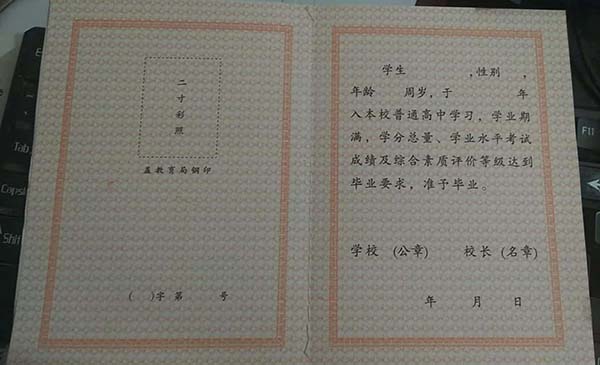 二寸彩照
盖教育局钢印
( )字 第 号
学生 ,性别 ,
年龄 周岁,于 年
入本校普通高中学习,学业期
满,学分总量、学业水平考试
成绩及综合素质评价等级达到
毕业要求,准予毕业。
学校 (公章) 校长 (名章)
年 月 日
Tab
Caps
Shift
F11